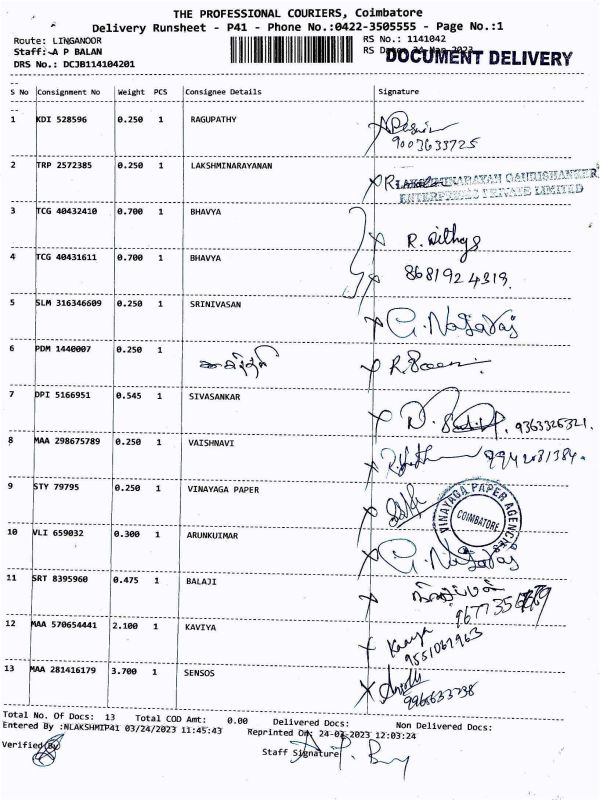 THE PROFESSIONAL COURIERS, Coimbatore
Delivery Runsheet - P41 - Phone No.:0422-3505555 - Page No.:1
Route: LINGANOOR
RS No.: 1141042
Staff: A P BALAN
RS Date: 24-Mar-2023
DOCUMENT DELIVERY
DRS No.: DCJB114104201
S No Consignment No Weight PCS Consignee Details Signature
1 KDI 528596 0.250 1 RAGUPATHY
9003633725
2 TRP 2572385 0.250 1 LAKSHMINARAYANAN
LAKSHMINARAYAN GAURISHANKER
ENTERPRISES PRIVATE LIMITED
3 TCG 40432410 0.700 1 BHAVYA
R.
4 TCG 40431611 0.700 1 BHAVYA
8681924319.
5 SLM 316346609 0.250 1 SRINIVASAN
G. Nagaraj
6 PDM 1440007 0.250 1
R.
7 DPI 5166951 0.545 1 SIVASANKAR
9363326321.
8 MAA 298675789 0.250 1 VAISHNAVI
9942081384.
9 STY 79795 0.250 1 VINAYAGA PAPER
VINAYAGA PAPER AGENCIES
COIMBATORE
10 VLI 659032 0.300 1 ARUNKUIMAR
G. Nagaraj
11 SRT 8395960 0.475 1 BALAJI
12 MAA 570654441 2.100 1 KAVIYA
Kaviya
9551061963
13 MAA 281416179 3.700 1 SENSOS
Total No. Of Docs: 13 Total COD Amt: 0.00 Delivered Docs: Non Delivered Docs:
Entered By :NLAKSHMIP41 03/24/2023 11:45:43 Reprinted On: 24-03-2023 12:03:24
Verified By
Staff Signature